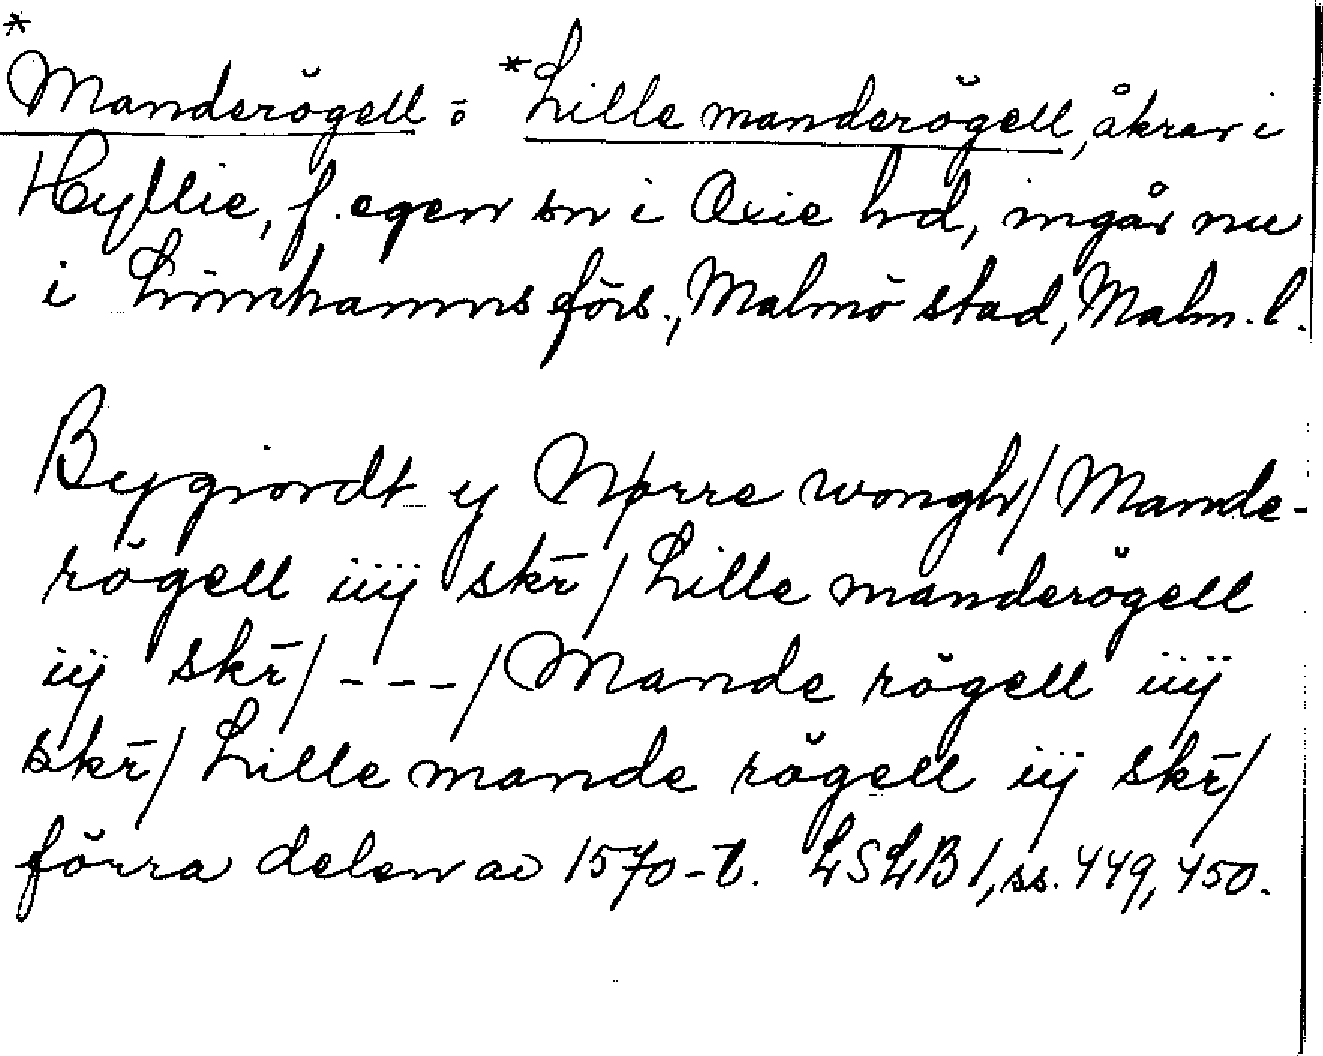 *Manderögell : *Lille manderögell, åkrar i
Hyllie, f. egen sn i Oxie hd, ingår nu
i Limhamns förs., Malmö stad, Malm. l.
Bygiordt y Nørre wongh/ Mande-
rögell iiij skr̄/ Lille manderögell
iij skr̄/ - - - / Mande rögell iiij
skr̄/ Lille mande rögell iij skr̄/
förra delen av 1570-t. LSLB 1, ss. 449, 450.